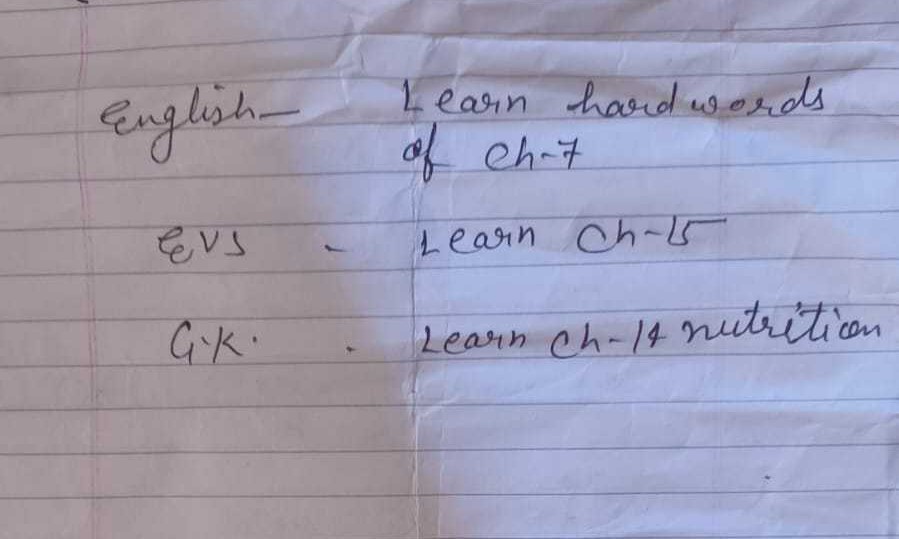 English- Learn hard words
of Ch-7
EVS - Learn Ch-15
G.K. - Learn Ch-14 nutrition